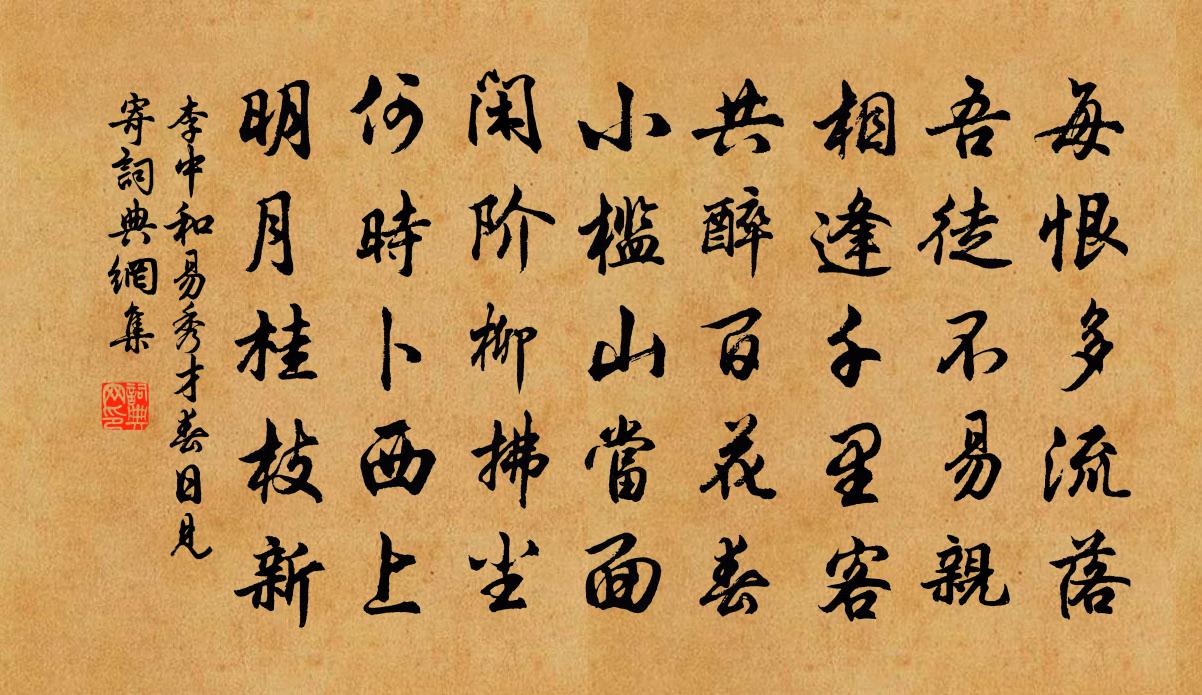 每恨多流落
吾徒不易親
相逢千里客
共醉百花春
小檻山當面
闲阶柳拂尘
何時卜西上
明月桂枝新
李中和易秀才春日見
寄詞典網集
詞典
网印